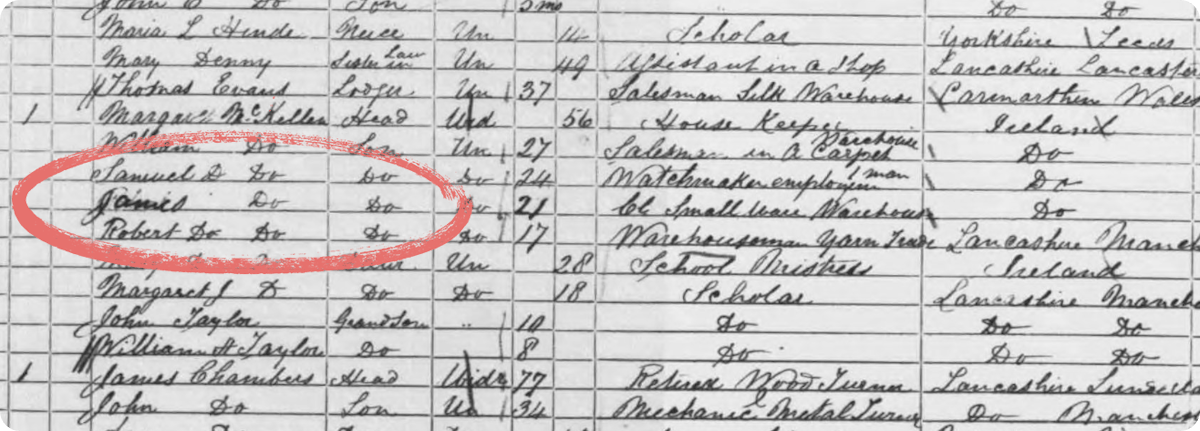 John C Do Son 3 mo Do Do
Maria L Hinde Neice Un 14 Scholar Yorkshire Leeds
Mary Denny Sister in Law Un 49 Assistant in a Shop Lancashire Lancaster
Thomas Evans Lodger Un 37 Salesman Silk Warehouse Carmarthen Wales
1 Margaret McKellen Head Wid 56 House Keeper Ireland
William Do Son Un 27 Salesman in a Carpet Warehouse Do
Samuel D Do Do Do 24 Watchmaker employing 1 man Do
James Do Do Do 21 Small Ware Warehouse Do
Robert Do Do Do Do 17 Warehouseman Yarn Trade Lancashire Manch
Un 28 School Mistress Ireland
Margaret J D Do Do 18 Scholar Lancashire Manch
John Taylor Grandson 10 Do Do Do
William H Taylor Do 8 Do Do Do
1 James Chambers Head Widr 77 Retired Wood Turner Lancashire
John Do Son Un 34 Mechanic Metal Turner Do Manches